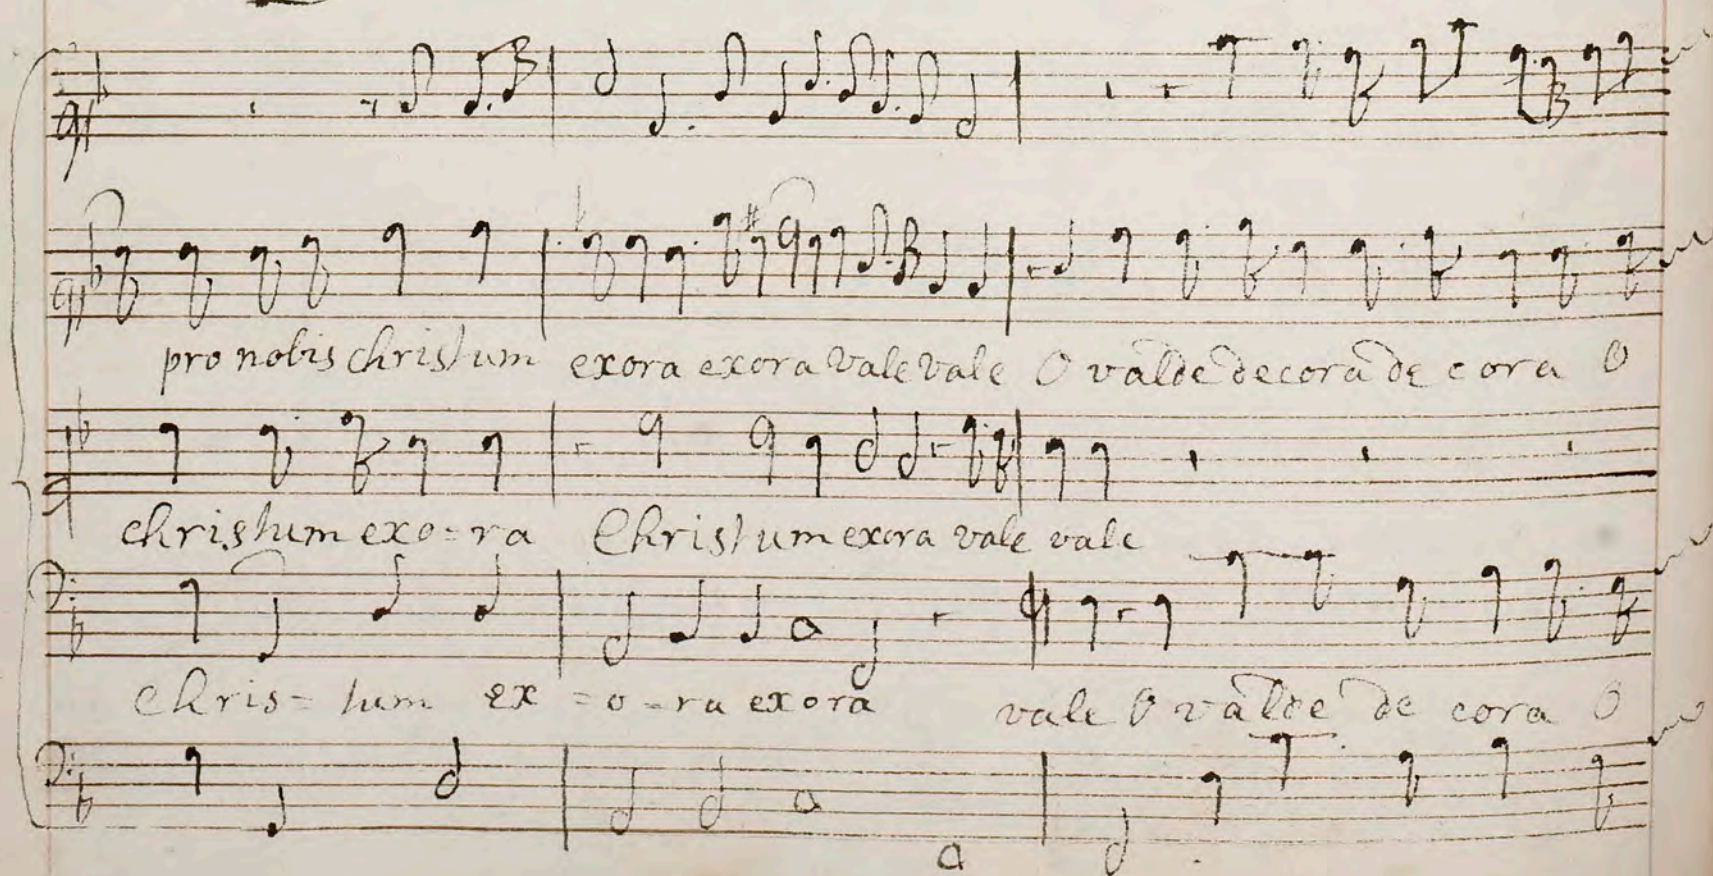 pro nobis christum exora exora vale vale O valde decora de cora O
christum exo=ra Christum exora vale vale
Chris= tum ex =o-ra exora vale O valde de cora O